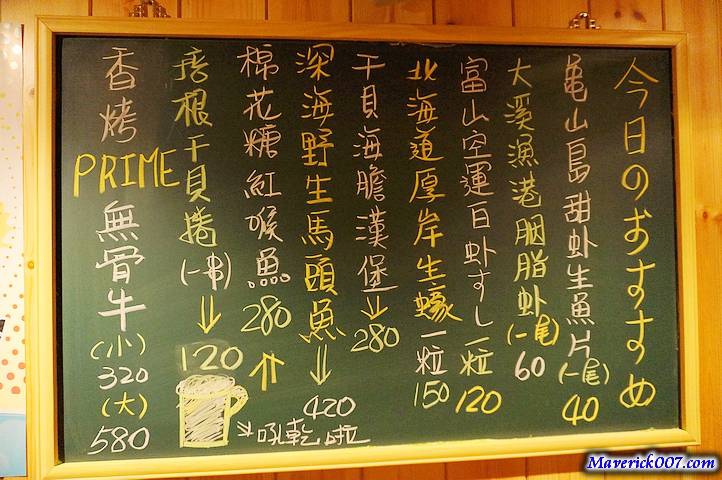 今日のおすすめ
亀山島甜虾生魚片(一尾)40
大溪漁港胭脂虾(一尾)60
富山空運白虾すし一粒120
北海道厚岸生蠔一粒150
干貝海膽漢堡↓280
深海野生馬頭魚⇓420
棉花糖紅喉魚280⇑
培根干貝捲(一串)⇓120
香烤PRIME無骨牛(小)320(大)580
*吼乾啦
Maverick007.com